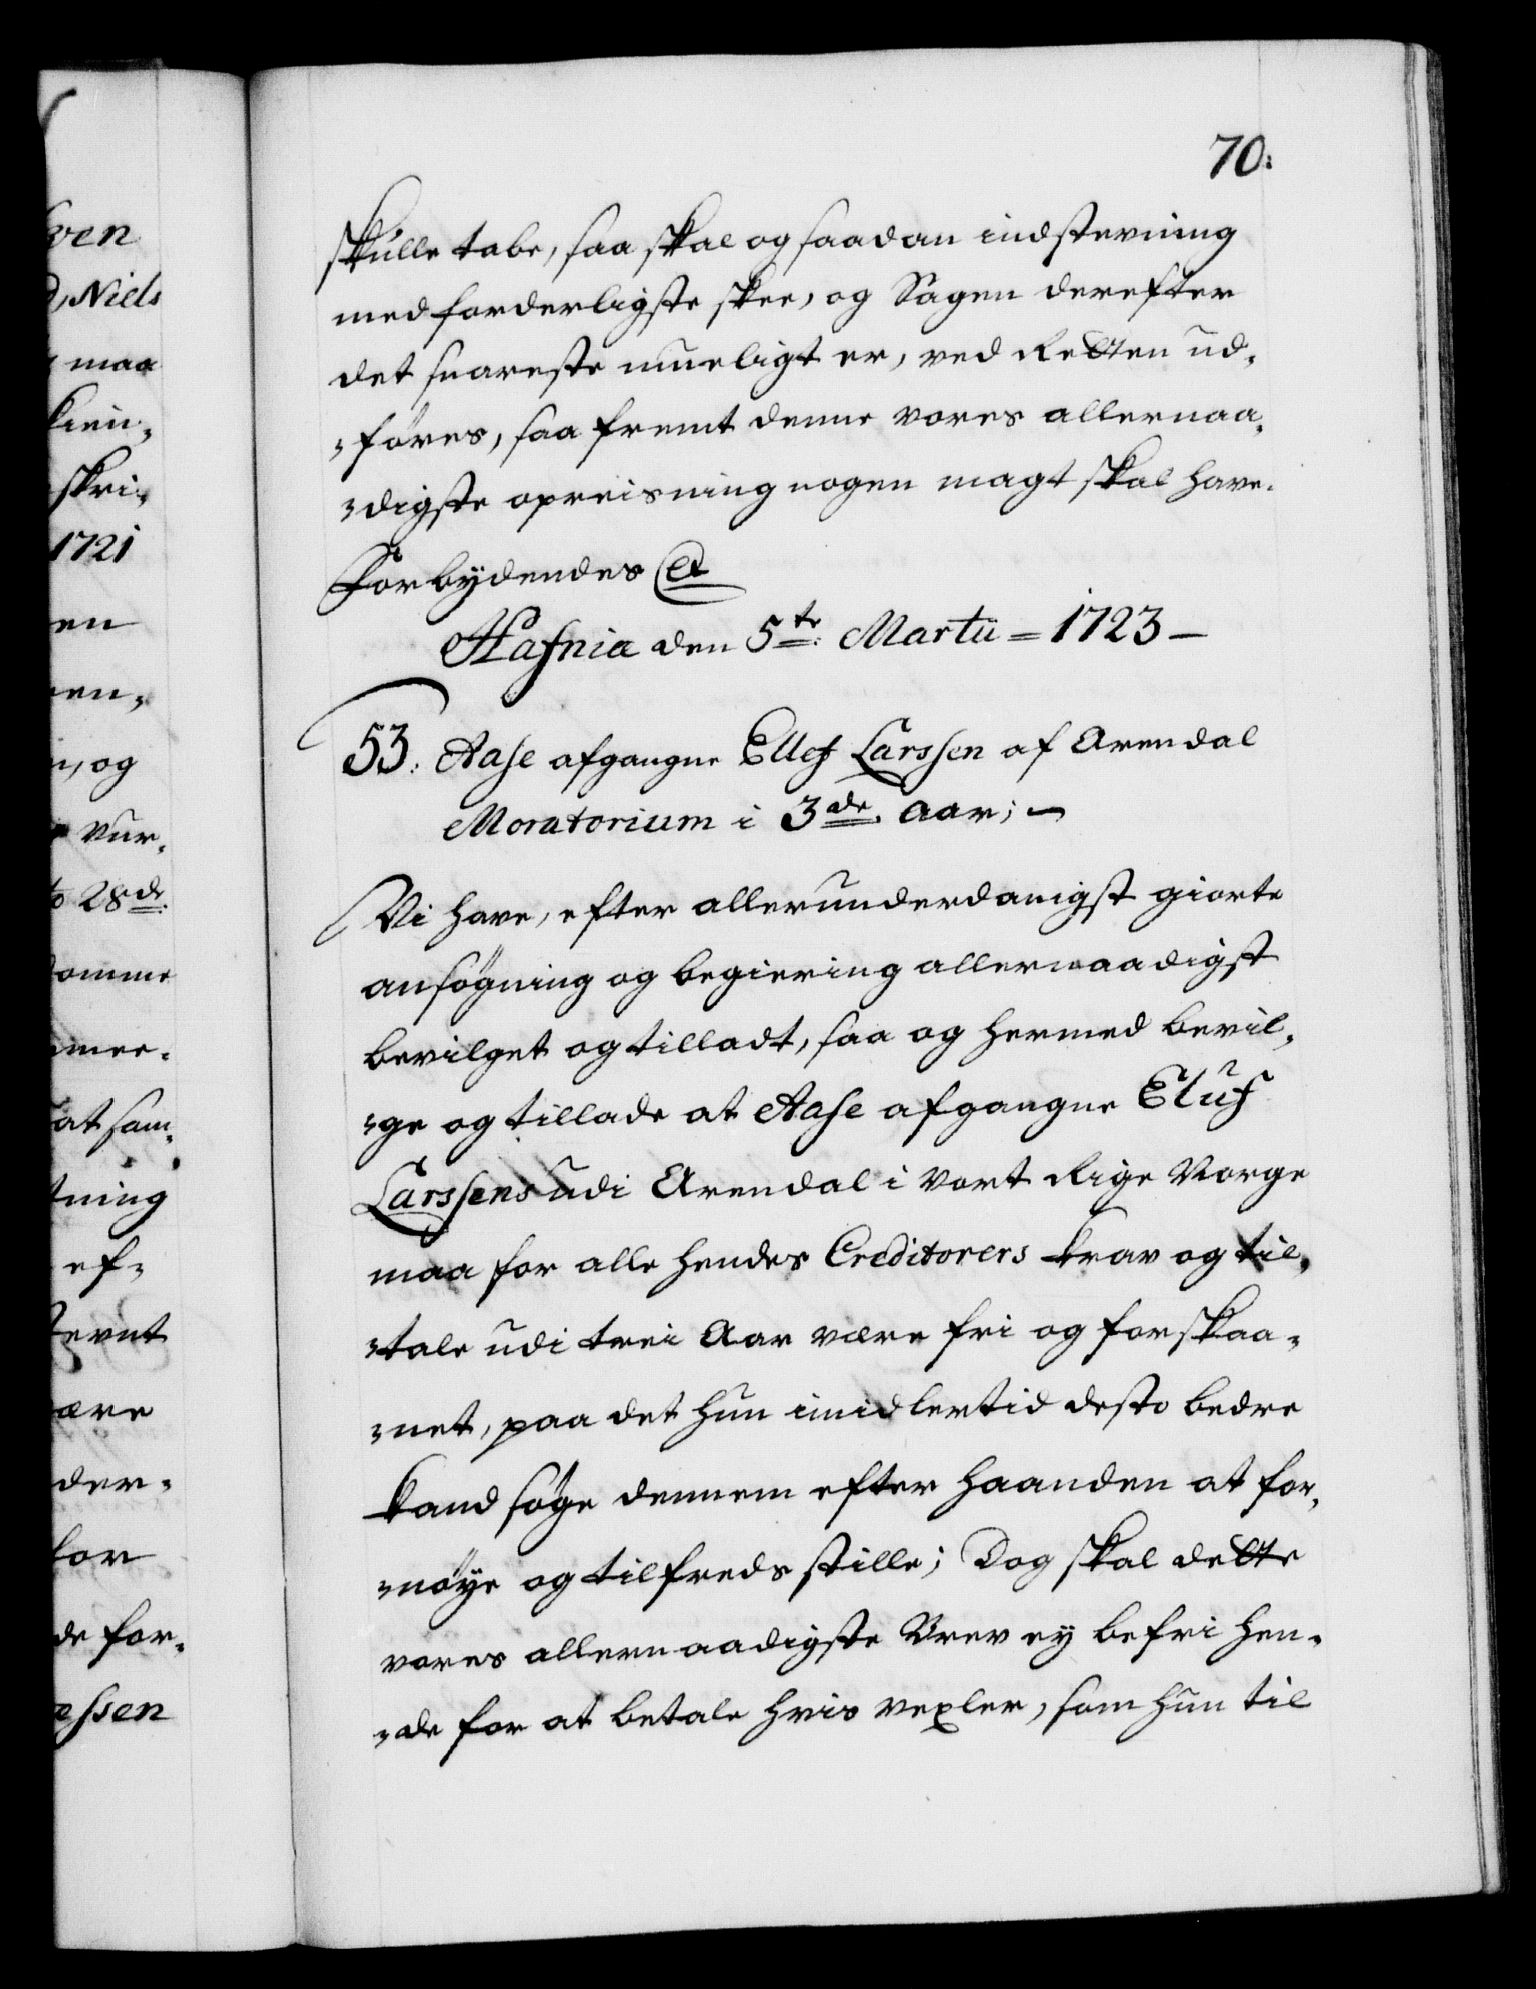 ven
d, Niels
maa
kien,
skri,
1721
en
en,
n, og
vur,
to 28de.
domme
mer,
at sam,
tning
ef,
tevnt
ære
der,
for
de for,
essen
70.
skulle tabe, saa skal og saadan indstevning
med forderligste skee, og Sagen derefter
det snareste mueligt er, ved Retten ud,
,føres, saa fremt denne vores allernaa,
,digste opreisning nogen magt skal have.
Forbydendes Et
Hafnia den 5te. Martii = 1723 –
53. Aase afgangne Ellef Larssen af Arendal
Moratorium i 3de. Aar; –
Vi have, efter allerunderdanigst giorte
ansøgning og begiering allernaadigst
bevilget og tilladt, saa og hermed bevil,
,ge og tillade at Aase afgangne Eluf
Larssens udi Arendal i vort Rige Norge
maa for alle hendes Creditorers krav og til,
,tale udi trei Aar være fri og forskaa,
,net, paa det hun imidlertid desto bedre
kand søge dennem efter haanden at for,
,nøye og tilfreds stille; Dog skal dette
vores allernaadigste Brev ey befri hen,
,de for at betale hvis vexler, som hun til